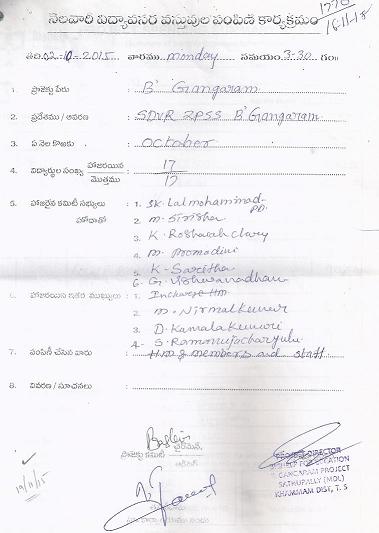 1770
16-11-15
నెలవారి విద్యావసర వస్తువుల పంపిణీ కార్యక్రమం
తేది: 02-10-2015 వారము monday సమయం 3-30 గం॥
1. ప్రాజెక్టు పేరు : B' Gangaram
2. ప్రదేశము / ఆవరణ : SDVR ZPSS B' Gangaram
3. ఏ నెల కొఱకు : October
4. విద్యార్థుల సంఖ్య హాజరయిన / మొత్తము : 17 / 17
5. హాజరైన కమిటీ సభ్యులు : 1. SK. Lalmohammad PD.
హోదాతో 2. M. Sirisha
3. K. Rosharah chary
4. M. Promodini
5. K- Saritha
6. G. Vishwanadham
6. హాజరయిన ఇతర ముఖ్యులు : 1. Incharge HM
2. M. Nirmal kumar
3. D. Kamala kumari
4- S. Ramanujacharyulu
7. పంపిణీ చేసిన వారు : HM & members and staff
8. వివరణ / సూచనలు :
ప్రాజెక్టు కమిటీ ఛైర్మన్,
19/11/15
PROJECT DIRECTOR
HELP FOR EDUCATION
B. GANGARAM PROJECT
SATHUPALLY (MDL)
KHAMMAM DIST, T. S